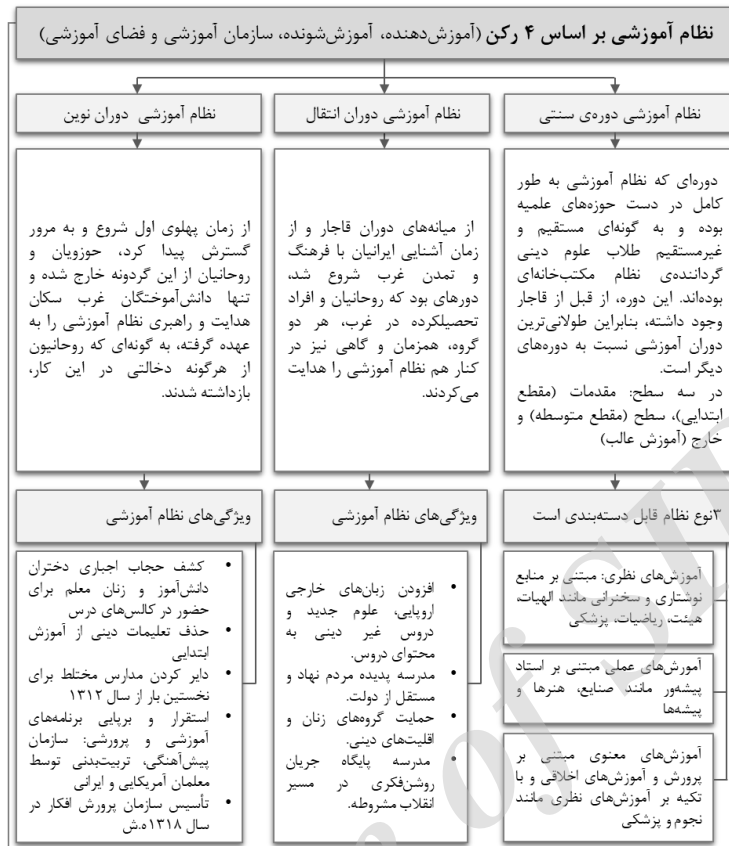 نظام آموزشی بر اساس ۴ رکن (آموزش‌دهنده، آموزش‌شونده، سازمان آموزشی و فضای آموزشی)
نظام آموزشی دوره‌ی سنتی
دوره‌ای که نظام آموزشی به طور
کامل در دست حوزه‌های علمیه
بوده و به گونه‌ای مستقیم و
غیرمستقیم طلاب علوم دینی
گرداننده‌ی نظام مکتب‌خانه‌ای
بوده‌اند. این دوره، از قبل از قاجار
وجود داشته، بنابراین طولانی‌ترین
دوران آموزشی نسبت به دوره‌های
دیگر است.
در سه سطح: مقدمات (مقطع
ابتدایی)، سطح (مقطع متوسطه) و
خارج (آموزش عالب)
۳نوع نظام قابل دسته‌بندی است
آموزش‌های نظری: مبتنی بر منابع
نوشتاری و سخنرانی مانند الهیات،
هیئت، ریاضیات، پزشکی
آمورش‌های عملی مبتنی بر استاد
پیشه‌ور مانند صنایع، هنرها و
پیشه‌ها
آموزش‌های معنوی مبتنی بر
پرورش و آموزش‌های اخلاقی و با
تکیه بر آموزش‌های نظری مانند
نجوم و پزشکی
نظام آموزشی دوران انتقال
از میانه‌های دوران قاجار و از
زمان آشنایی ایرانیان با فرهنگ
و تمدن غرب شروع شد،
دورهای بود که روحانیان و افراد
تحصیلکرده در غرب، هر دو
گروه، همزمان و گاهی نیز در
کنار هم نظام آموزشی را هدایت
می‌کردند.
ویژگی‌های نظام آموزشی
• افزودن زبان‌های خارجی
اروپایی، علوم جدید و
دروس غیر دینی به
محتوای دروس.
• مدرسه پدیده مردم نهاد و
مستقل از دولت.
• حمایت گروه‌های زنان و
اقلیت‌های دینی.
• مدرسه پایگاه جریان
روشن‌فکری در مسیر
انقلاب مشروطه.
نظام آموزشی دوران نوین
از زمان پهلوی اول شروع و به مرور
گسترش پیدا کرد، حوزویان و
روحانیان از این گردونه خارج شده و
تنها دانش‌آموختگان غرب سکان
هدایت و راهبری نظام آموزشی را به
عهده گرفته، به گونه‌ای که روحانیون
از هرگونه دخالتی در این کار،
بازداشته شدند.
ویژگی‌های نظام آموزشی
• کشف حجاب اجباری دختران
دانش‌آموز و زنان معلم برای
حضور در کالس‌های درس
• حذف تعلیمات دینی از آموزش
ابتدایی
• دایر کردن مدارس مختلط برای
نخستین بار از سال ۱۳۱۲
• استقرار و برپایی برنامه‌های
آموزشی و پرورشی: سازمان
پیش‌آهنگی، تربیت‌بدنی توسط
معلمان آمریکایی و ایرانی
• تأسیس سازمان پرورش افکار در
سال ۱۳۱۸ه.ش